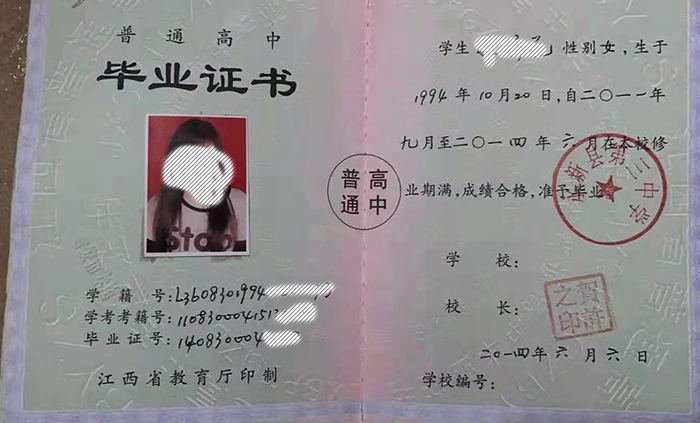 普通高中
毕业证书
Stop
学籍号:L3608301994
学考考籍号:110830004151
毕业证号:140830004
江西省教育厅印制
普通
高中
学生 性别女,生于
1994年10月20日,自二〇一一年
九月至二〇一四年六月在本校修
业期满,成绩合格,准予毕业。
新县第三中学
学校:
校长:
贺许之印
二〇一四年六月六日
学校编号: